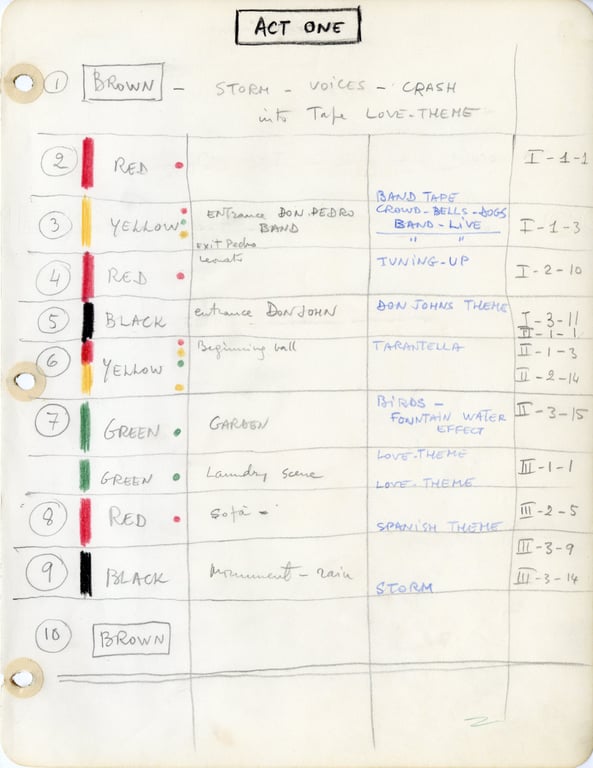 ACT ONE
① BROWN - STORM - VOICES - CRASH
into Tape LOVE-THEME
② RED I-1-1
BAND TAPE
③ YELLOW ENTRANCE DON PEDRO CROWD-BELLS-DOGS I-1-3
BAND BAND-LIVE
Exit Pedro " "
Leonato
④ RED TUNING-UP I-2-10
⑤ BLACK entrance DON JOHN DON JOHNS THEME I-3-11
II-1-1
⑥ YELLOW Beginning ball TARANTELLA II-1-3
II-2-14
⑦ GREEN GARDEN BIRDS - II-3-15
FONNTAIN WATER
EFFECT
LOVE-THEME
GREEN Laundry scene III-1-1
LOVE-THEME
⑧ RED Sofa - III-2-5
SPANISH THEME
III-3-9
⑨ BLACK Monument - rain III-3-14
STORM
⑩ BROWN